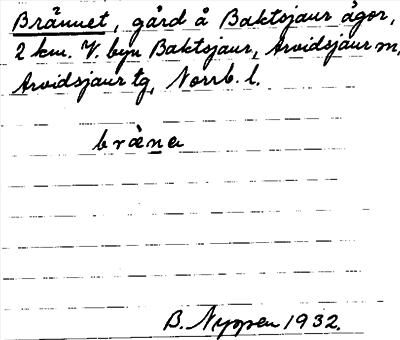 Brännet, gård å Baktsjaur ägor,
2 km. V. byn Baktsjaur, Arvidsjaur m,
Arvidsjaur tg, Norrb. l.
bräna
B. Nyppen 1932.